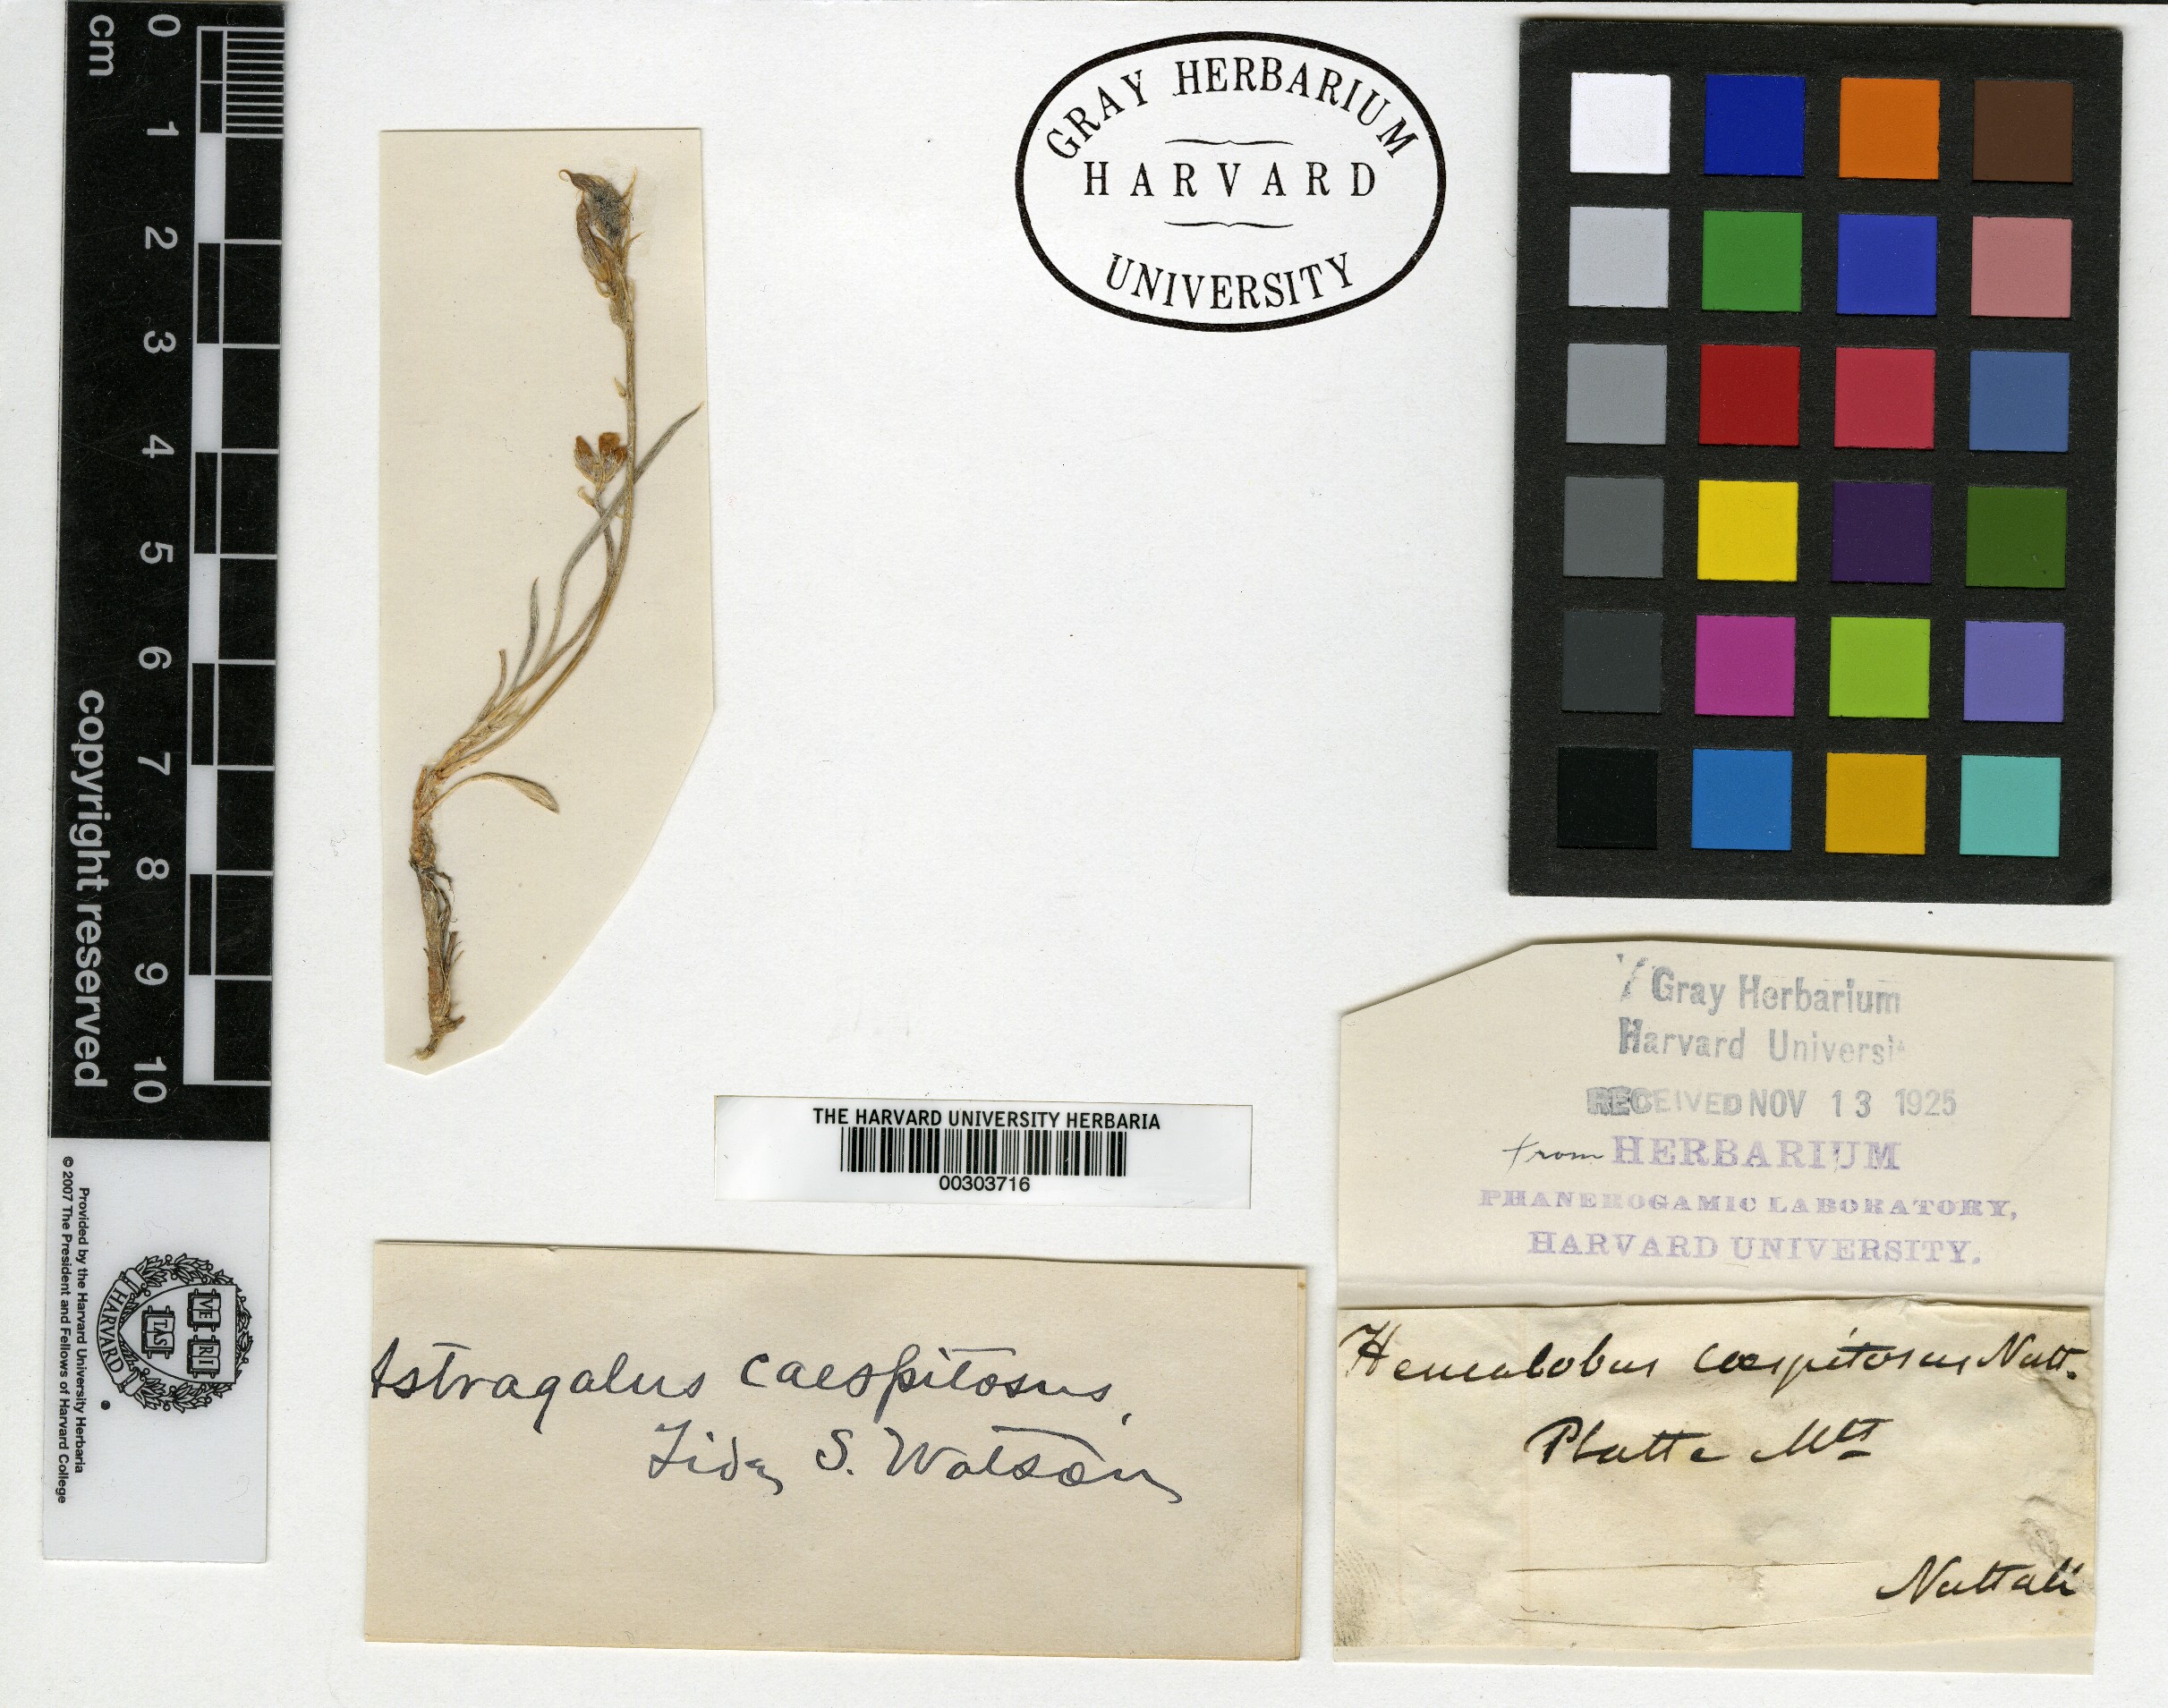 cm
0
1
2
3
4
5
6
7
8
9
10
copyright reserved
© 2007 The President and Fellows of Harvard College
Provided by the Harvard University Herbaria
VE RI TAS
HARVARD
GRAY HERBARIUM
HARVARD
UNIVERSITY
THE HARVARD UNIVERSITY HERBARIA
00303716
Astragalus caespitosus,
S. Watson
Gray Herbarium
Harvard Universit
RECEIVED NOV 13 1925
from HERBARIUM
PHANEROGAMIC LABORATORY,
HARVARD UNIVERSITY.
Homalobus caespitosus Nutt.
Platte Mts
Nuttall